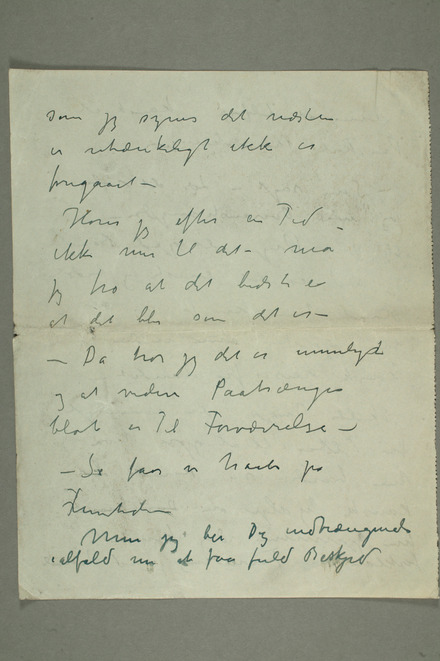 som jeg synes det næsten
er utænkeligt ikke er
foregaaet –
Hører jeg efter en Tid –
ikke mer til det – må
jeg tro at det bedste er
at det blir som det er –
– Da tror jeg det er umuligt
og at videre Paatrængen
blot er til Forværrelse –
– Så faar vi haabe på
Fremtiden
Men jeg ber Dig indtrængende
ialfald nu at faa fuld Beskjed